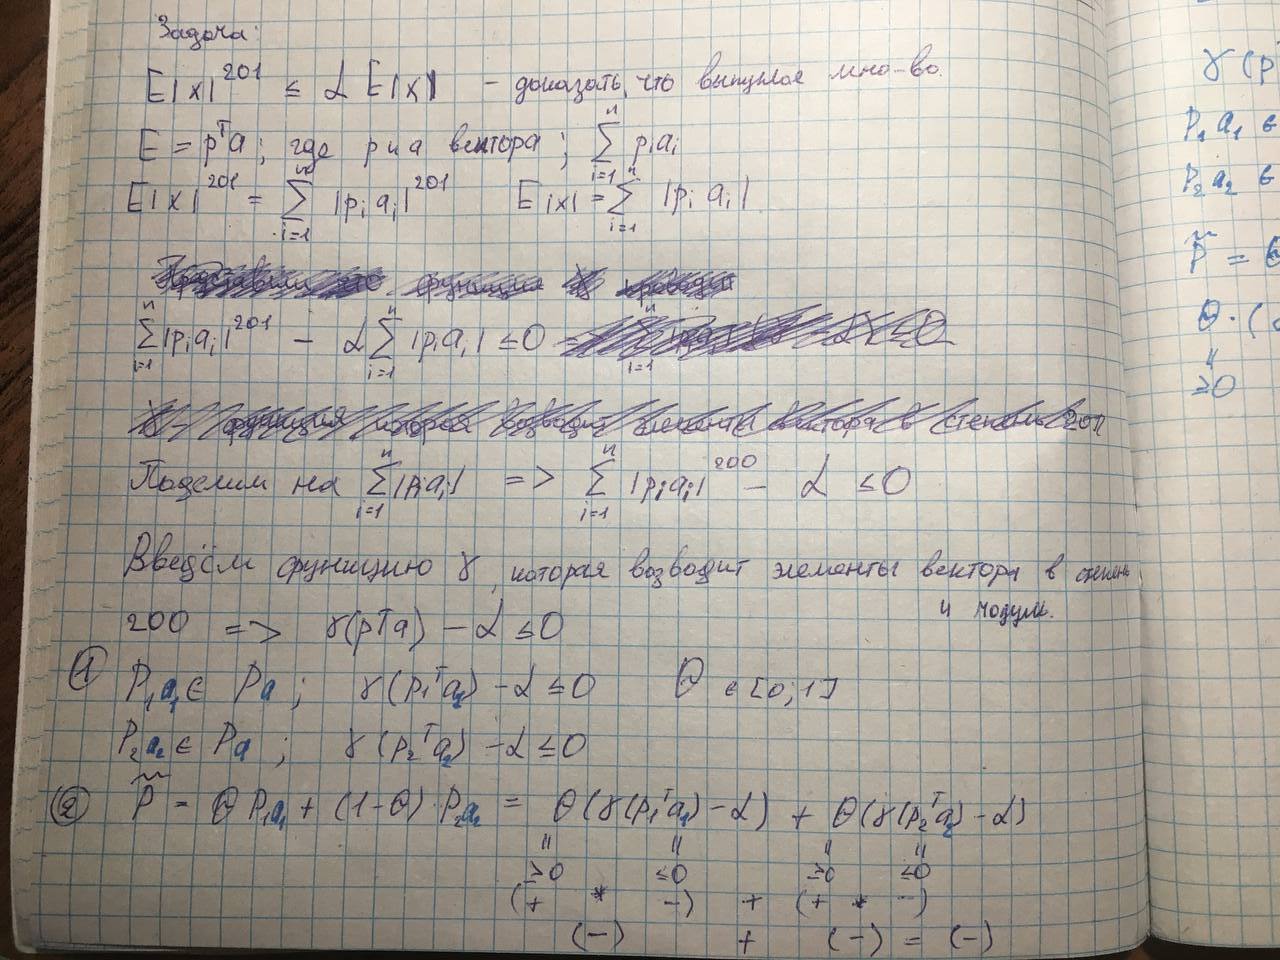 Задача:
E|x|^201 ≤ α E|x| - доказать, что выпуклое мно-во.
E = p^T a; где p и a вектора; ∑_{i=1}^{n} p_i a_i
E|x|^201 = ∑_{i=1}^{n} |p_i a_i|^201 E|x| = ∑_{i=1}^{n} |p_i a_i|
∑_{i=1}^{n} |p_i a_i|^201 - α ∑_{i=1}^{n} |p_i a_i| ≤ 0
Поделим на ∑_{i=1}^{n} |p_i a_i| => ∑_{i=1}^{n} |p_i a_i|^200 - α ≤ 0
Введём функцию γ, которая возводит элементы вектора в степень
и модули.
200 => γ(p^T a) - α ≤ 0
① P_1 a_1 ∈ Pa; γ(p_1^T a_1) - α ≤ 0 θ ∈ [0;1]
P_2 a_2 ∈ Pa; γ(p_2^T a_2) - α ≤ 0
② P̃ = θ P_1 a_1 + (1-θ) · P_2 a_2 = θ(γ(p_1^T a_1) - α) + θ(γ(p_2^T a_2) - α)
≥0 ≤0 ≥0 ≤0
(+ * -) + (+ * -)
(-) + (-) = (-)
γ(p
P_1 a_1 ∈
P_2 a_2 ∈
P̃ =
θ·(
≥0